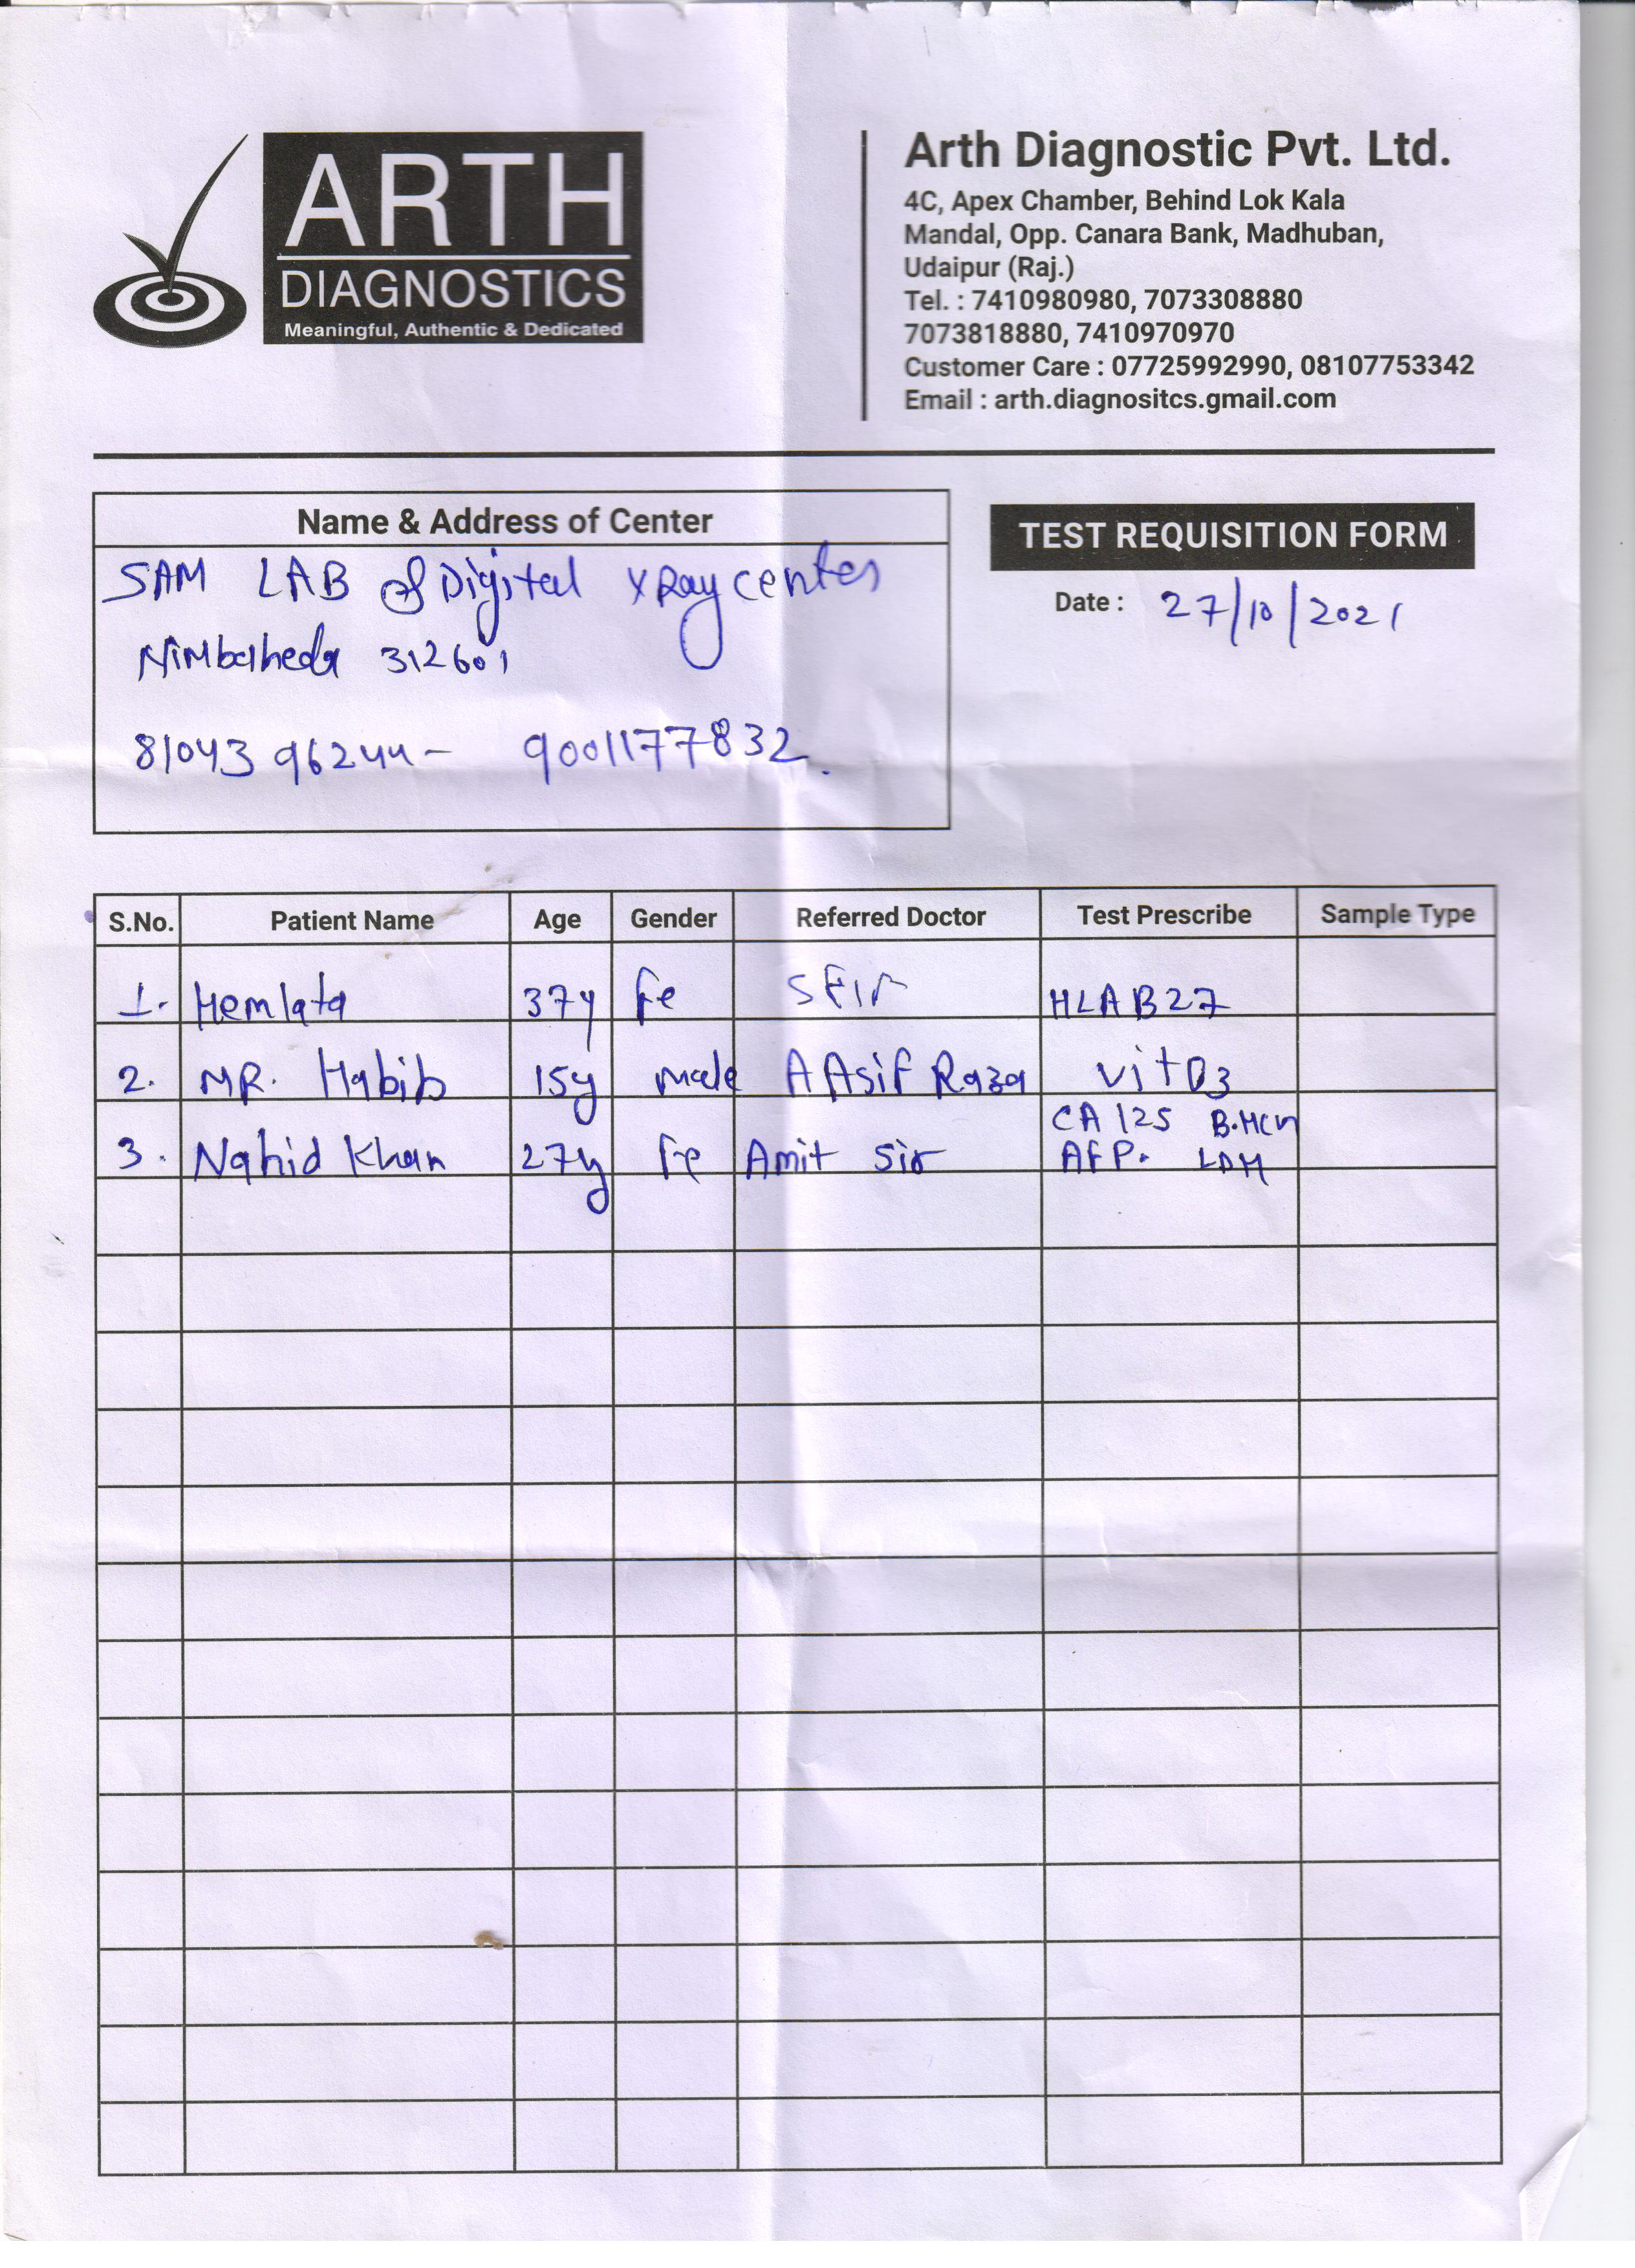 ARTH
DIAGNOSTICS
Meaningful, Authentic & Dedicated
Arth Diagnostic Pvt. Ltd.
4C, Apex Chamber, Behind Lok Kala
Mandal, Opp. Canara Bank, Madhuban,
Udaipur (Raj.)
Tel. : 7410980980, 7073308880
7073818880, 7410970970
Customer Care : 07725992990, 08107753342
Email : arth.diagnositcs.gmail.com
Name & Address of Center
SAM LAB & Digital X Ray center
Nimbaheda 312601
8104396244 - 9001177832.
TEST REQUISITION FORM
Date : 27/10/2021
S.No. Patient Name Age Gender Referred Doctor Test Prescribe Sample Type
1. Hemlata 37y Fe HLA B27
2. MR. Habib 15y male A Asif Raza vit D3
3. Nahid Khan 27y Fe Amit Sir CA 125 B.HCG
AFP. LDH